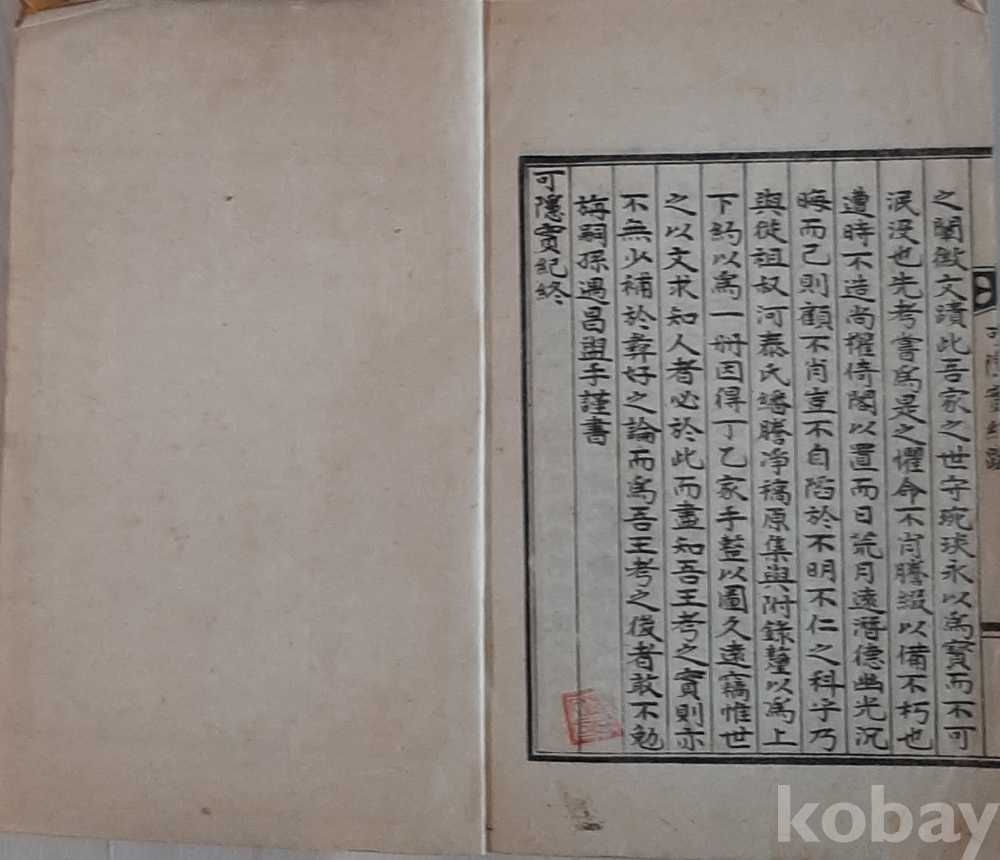 之闡微文蹟此吾家之世守琬琰永以爲寶而不可
泯沒也先考嘗爲是之懼命不肖謄綴以備不朽也
遭時不造尚稽倚閣以置而日荒月遠潛德幽光沉
晦而已則顧不肖豈不自陷於不明不仁之科乎乃
與從祖叔河泰氏繙謄凈稿原集與附錄釐以爲上
下約以爲一冊因得丁乙家手蹔以圖久遠竊惟世
之以文求知人者必於此而盡知吾王考之實則亦
不無少補於彛好之論而爲吾王考之後者敢不勉
誨嗣孫遇昌盥手謹書
可隱實紀終
kobay